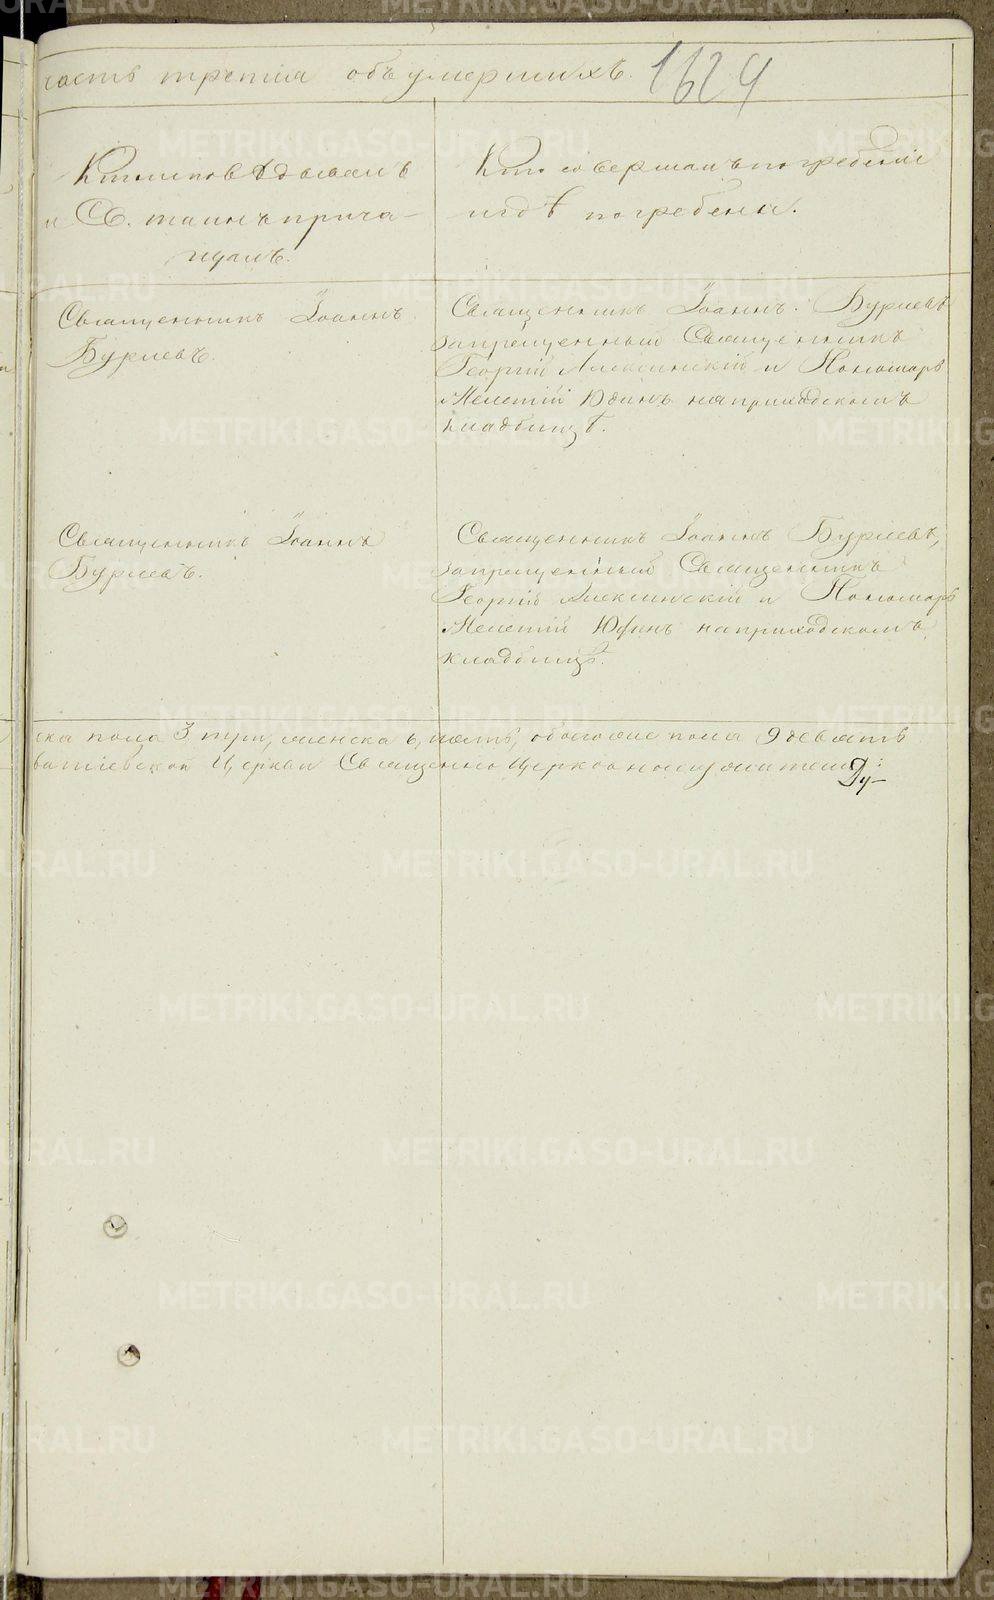 часть третiя объ умершихъ. 1624
Кто исповѣдывалъ
и Св. таинъ прича-
щалъ.
Кто совершалъ погребенiе
и гдѣ погребены.
Священникъ Iоаннъ
Бурлевъ.
Священникъ Iоаннъ Бурлевъ
запрещенный Священникъ
Георгiй Алексинскiй и Пономарь
Мелетiй Юдинъ на приходскомъ
кладбищѣ.
Священникъ Iоаннъ
Бурлевъ.
Священникъ Iоаннъ Бурлевъ,
запрещенный Священникъ
Георгiй Алексинскiй и Пономарь
Мелетiй Юдинъ на приходскомъ
кладбищѣ.
ска пола 3 три, женска 6, обоего пола 9 девять
Церкви Священно Церковнослужители:
Ду-
METRIKI.GASO-URAL.RU